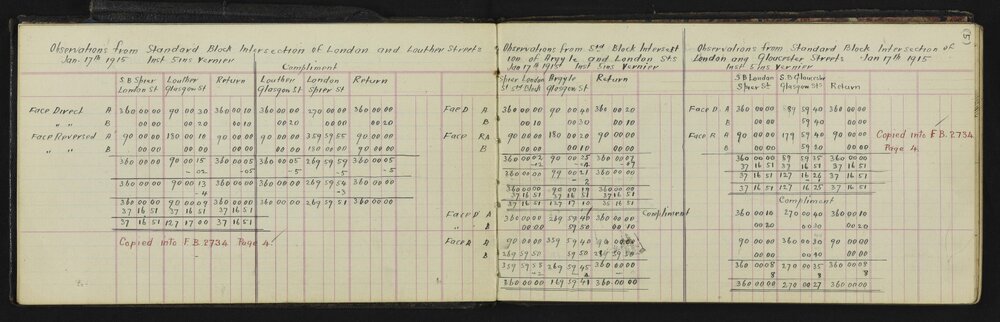 Observations from Standard Block Intersection of London and Louther Streets
Jan. 17th 1915 Inst 5ins Vernier
Compliment
S.B Spier Louther Return Louther London Return
London St Glasgow St Glasgow St Spier St
Face Direct A 360 00 00 90 00 30 360 00 10 360 00 00 270 00 00 360 00 00
" " B 00 00 00 20 00 10 00 20 00 00 00 20
Face Reversed A 90 00 00 180 00 10 90 00 00 90 00 00 359 59 55 90 00 00
" " B
360 00 00 90 00 15 360 00 05 360 00 05 269 59 59 360 00 05
- 02 - 05 - 5 - 5 - 5
360 00 00 90 00 13 360 00 00 360 00 00 269 59 54 360 00 00
- 4 - 3
360 00 00 90 00 09 360 00 00 360 00 00 269 59 51 360 00 00
37 16 51 37 16 51 37 16 51
37 16 51 127 17 00 37 16 51
Copied into F.B. 2734 Page 4.
Observations from Std Block Intersect
ion of Argyle and London Sts
Jan 17th 1915 Inst 5ins Vernier
Spier London Argyle Return
St Std Block Glasgow St
Face D A 360 00 00 90 00 40 360 00 20
B 00 10 00 30 00 10
Face R A 90 00 00 180 00 20 90 00 00
B 00 00 00 10 00 00
360 00 02 90 00 25 360 00 07
- 02 - 07
360 00 00
360 00 00
37 16 51 37 16 51
37 16 51 127 17 10
Compliment
Face D A 360 00 00 269 59 40 360 00 00
" B 00 00 59 50 00 10
Face R A 90 00 00 359 59 40 90 00 00
B 269 59 50 59 50 269 59 50
359 59 58 269 59 45 360 00 00
360 00 00
Observations from Standard Block Intersection of
London and Gloucester Streets Jan 17th 1915
Inst 5ins Vernier
S B London S.B Gloucester
Spier St Glasgow Sts Return
Face D A 360 00 00 89 59 40 360 00 00
B 00 00 59 40 00 00
Face R A 90 00 00 179 59 40 90 00 00
B 00 00 59 20 00 00
360 00 00 89 59 35 360 00 00
37 16 51 37 16 51 37 16 51
37 16 51 127 16 26 37 16 51
37 16 51 127 16 25 37 16 51
Copied into F.B. 2734
Page 4.
Compliment
360 00 10 270 00 40 360 00 10
00 20 00 30 00 20
90 00 00 360 00 30 90 00 00
00 00 00 40 00 00
360 00 08 270 00 35 360 00 08
8 8 8
360 00 00 270 00 27 360 00 00